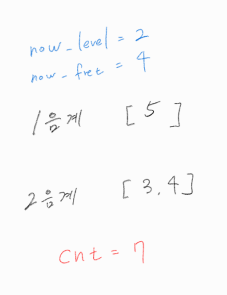 now_level = 2
now_fret = 4
1음계 [5]
2음계 [3,4]
cnt = 7